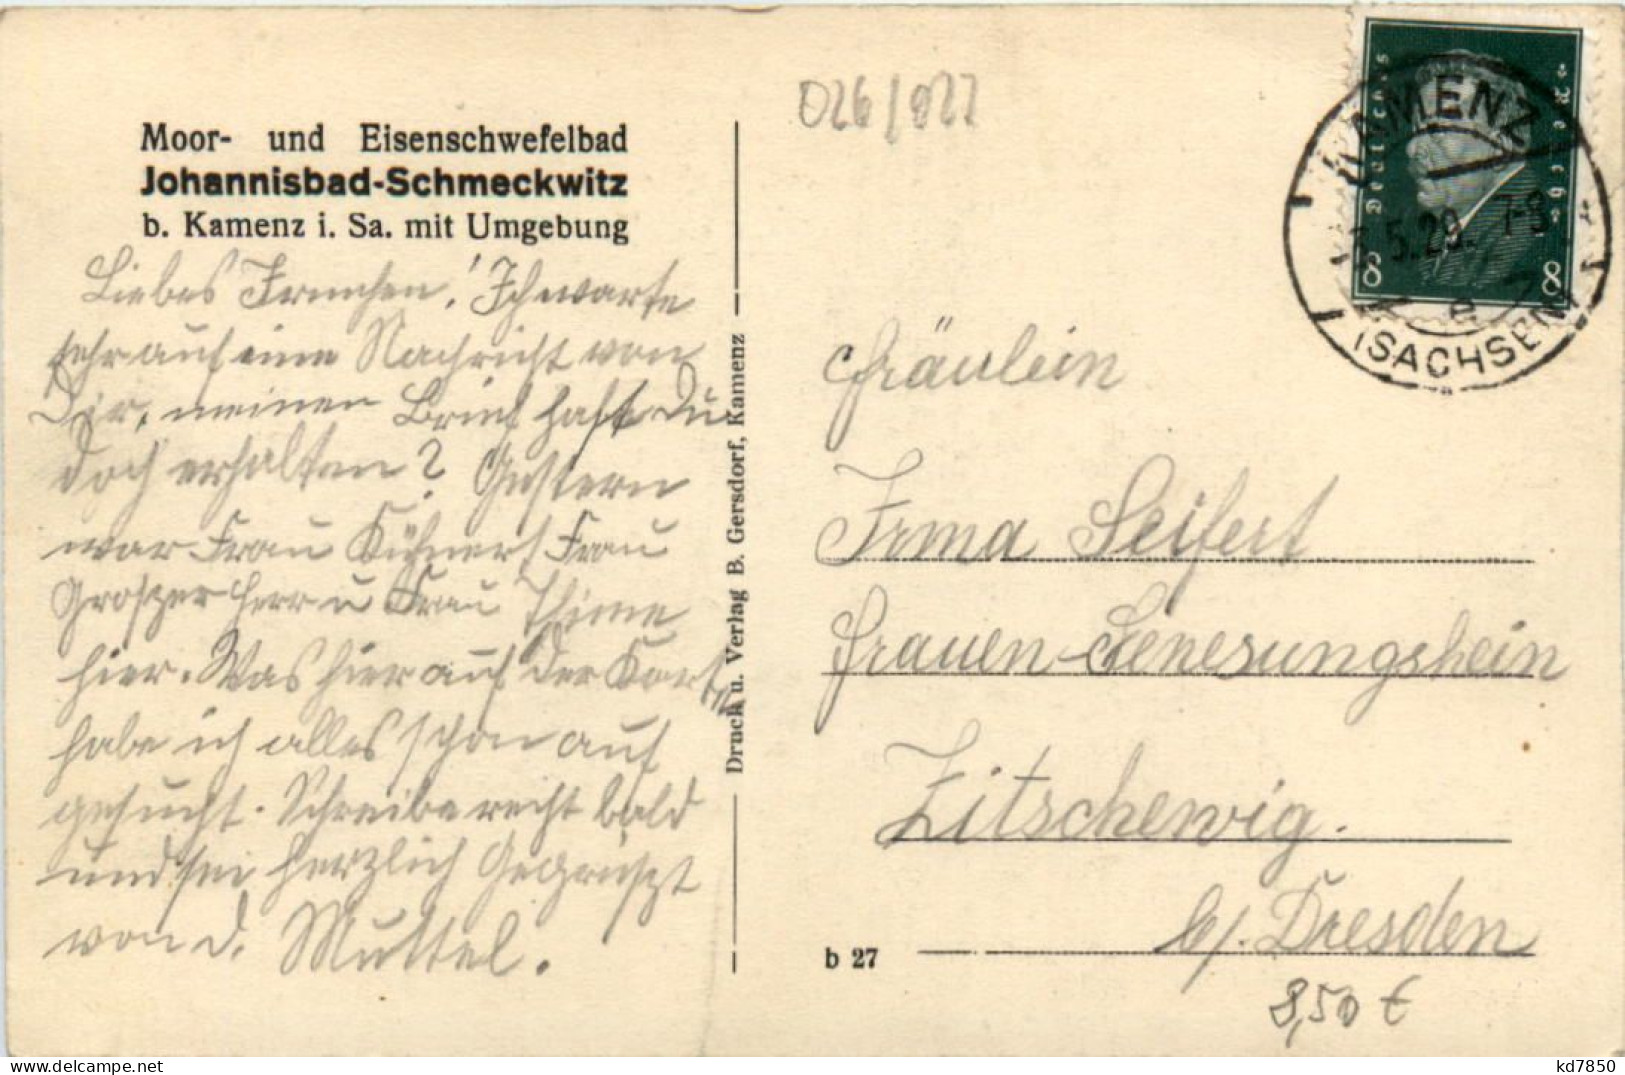 Moor- und Eisenschwefelbad
Johannisbad-Schmeckwitz
b. Kamenz i. Sa. mit Umgebung
Liebes Irmchen! Ich warte
sehr auf eine Nachricht von
Dir, meinen Brief hast Du
doch erhalten? Gestern
war Frau Kühnert Frau
Groszer Herr u Frau Thieme
hier. Was hier auf der Karte
habe ich alles schon auf
gesucht. Schreibe recht bald
und sei herzlich Gegrüszt
von d. Muttel.
Druck u. Verlag B. Gersdorf, Kamenz
026/022
Deutsches Reich
8 8
KAMENZ
5.29. 7-8
e
(SACHSEN)
Fräulein
Irma Seifert
Frauen-Genesungshein
Zitschewig.
b/. Dresden
b 27
8,50 €
kd7850